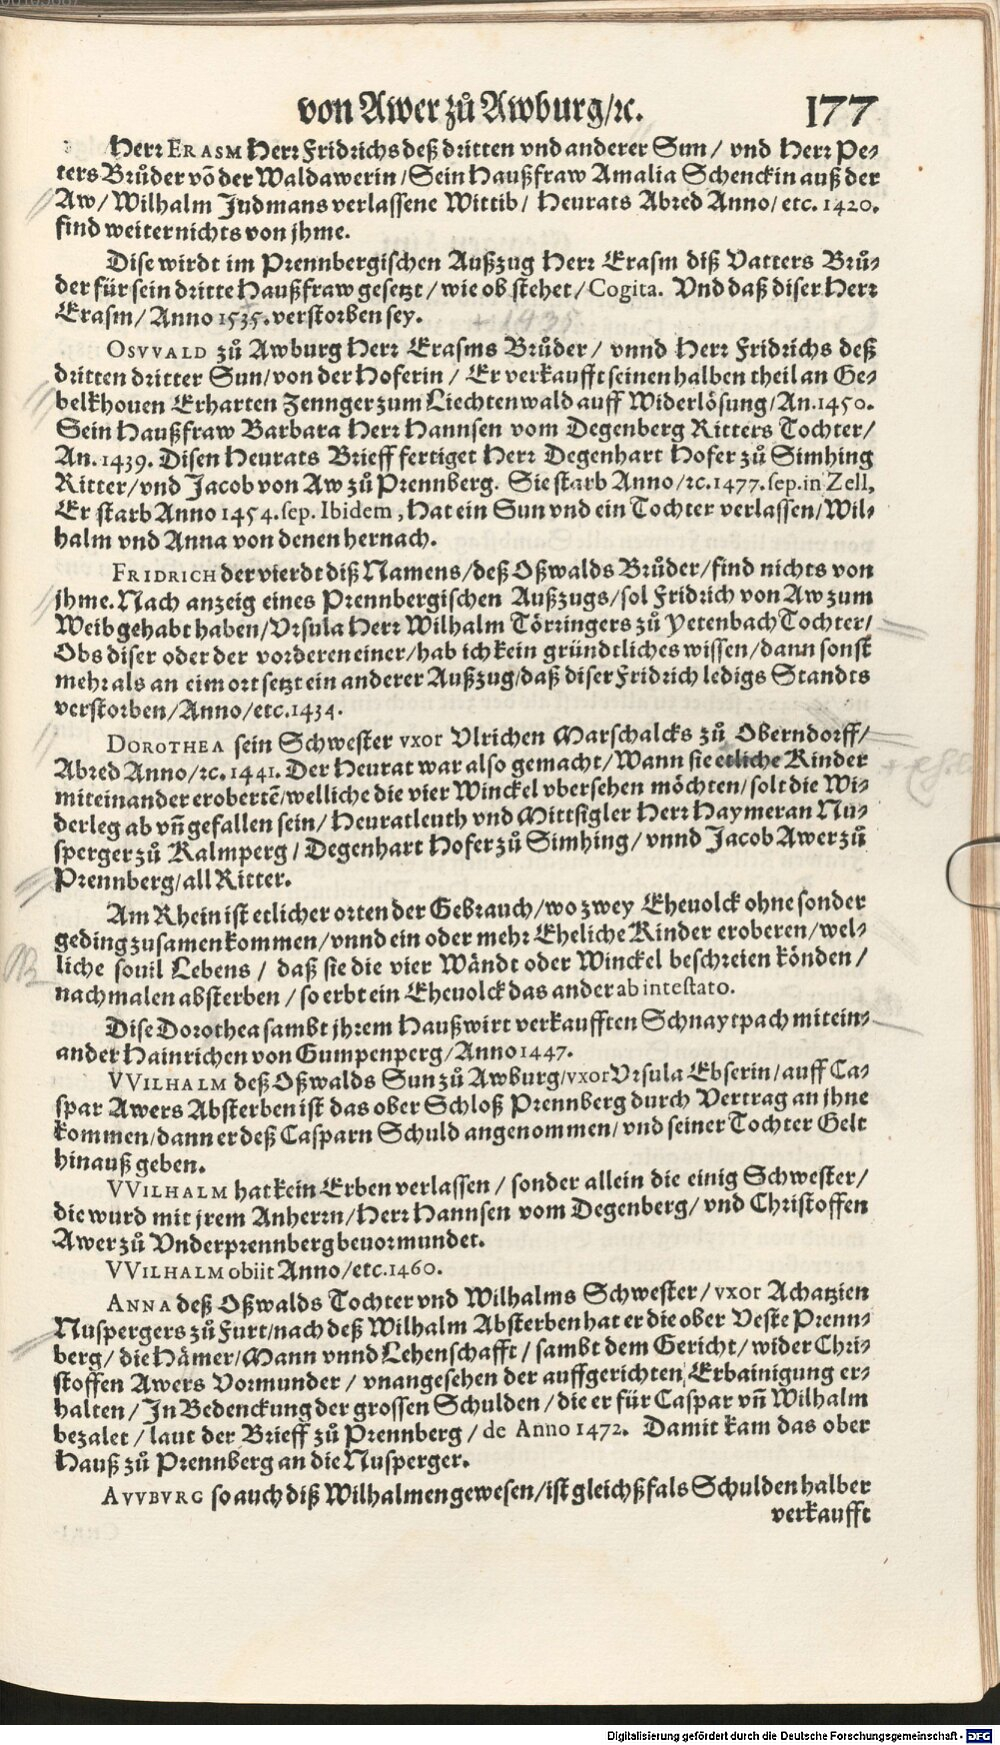 von Awer zů Awburg/ꝛc. 177
Herꝛ ERASM Herꝛ Fridrichs deß dritten vnd anderer Sun / vnd Herꝛ Pe-
ters Brůder võ der Waldawerin / Sein Haußfraw Amalia Schenckin auß der
Aw / Wilhalm Judmans verlassene Wittib / Heurats Abred Anno / etc. 1420.
find weiter nichts von jhme.
Dise wirdt im Prennbergischen Außzug Herꝛ Erasm diß Vatters Brů-
der für sein dritte Haußfraw gesetzt / wie ob stehet / Cogita. Vnd daß diser Herꝛ
Erasm / Anno 1535. verstorben sey. + 1435
OSVVALD zů Awburg Herꝛ Erasms Brůder / vnnd Herꝛ Fridrichs deß
dritten dritter Sun / von der Hoferin / Er verkaufft seinen halben theil an Ge-
belkhouen Erharten Zennger zum Liechtenwald auff Widerlösung / An. 1450.
Sein Haußfraw Barbara Herꝛ Hannsen vom Degenberg Ritters Tochter /
An. 1439. Disen Heurats Brieff fertiget Herꝛ Degenhart Hofer zů Simhing
Ritter / vnd Jacob von Aw zů Prennberg. Sie starb Anno / ꝛc. 1477. sep. in Zell,
Er starb Anno 1454. sep. Ibidem, Hat ein Sun vnd ein Tochter verlassen / Wil-
halm vnd Anna von denen hernach.
FRIDRICH der vierdt diß Namens / deß Oßwalds Brůder / find nichts von
jhme. Nach anzeig eines Prennbergischen Außzugs / sol Fridrich von Aw zum
Weib gehabt haben / Vrsula Herꝛ Wilhalm Törringers zů Yetenbach Tochter /
Obs diser oder der vorderen einer / hab ich kein gründtliches wissen / dann sonst
mehr als an eim ort setzt ein anderer Außzug / daß diser Fridrich ledigs Standts
verstorben / Anno / etc. 1434.
DOROTHEA sein Schwester vxor Vlrichen Marschalcks zů Oberndorff /
Abred Anno / ꝛc. 1441. Der Heurat war also gemacht / Wann sie etliche Kinder
miteinander eroberte͂ / welliche die vier Winckel vbersehen möchten / solt die Wi-
derleg ab vñ gefallen sein / Heuratleuth vnd Mittsigler Herꝛ Haymeran Nu-
sperger zů Kalmperg / Degenhart Hofer zů Simhing / vnnd Jacob Awer zů
Prennberg / all Ritter.
Am Rhein ist etlicher orten der Gebrauch / wo zwey Eheuolck ohne sonder
geding zusamen kommen / vnnd ein oder mehr Eheliche Kinder eroberen / wel-
liche souil Lebens / daß sie die vier Wändt oder Winckel beschreien könden /
nachmalen absterben / so erbt ein Eheuolck das ander ab intestato.
Dise Dorothea sambt jhrem Haußwirt verkaufften Schnaytpach mitein-
ander Hainrichen von Gumpenperg / Anno 1447.
VVILHALM deß Oßwalds Sun zů Awburg / vxor Vrsula Ebserin / auff Ca-
spar Awers Absterben ist das ober Schloß Prennberg durch Vertrag an jhne
kommen / dann er deß Casparn Schuld angenommen / vnd seiner Tochter Gelt
hinauß geben.
VVILHALM hat kein Erben verlassen / sonder allein die einig Schwester /
die wurd mit jrem Anherrn / Herꝛ Hannsen vom Degenberg / vnd Christoffen
Awer zů Vnderprennberg beuormundet.
VVILHALM obiit Anno / etc. 1460.
ANNA deß Oßwalds Tochter vnd Wilhalms Schwester / vxor Achatzien
Nuspergers zů Furt / nach deß Wilhalm Absterben hat er die ober Veste Prenn-
berg / die Hämer / Mann vnnd Lehenschafft / sambt dem Gericht / wider Chri-
stoffen Awers Vormunder / vnangesehen der auffgerichten Erbainigung er-
halten / In Bedenckung der grossen Schulden / die er für Caspar vñ Wilhalm
bezalet / laut der Brieff zů Prennberg / de Anno 1472. Damit kam das ober
Hauß zů Prennberg an die Nusperger.
AVVBVRG so auch diß Wilhalmen gewesen / ist gleichßfals Schulden halber
verkaufft
Digitalisierung gefördert durch die Deutsche Forschungsgemeinschaft - DFG